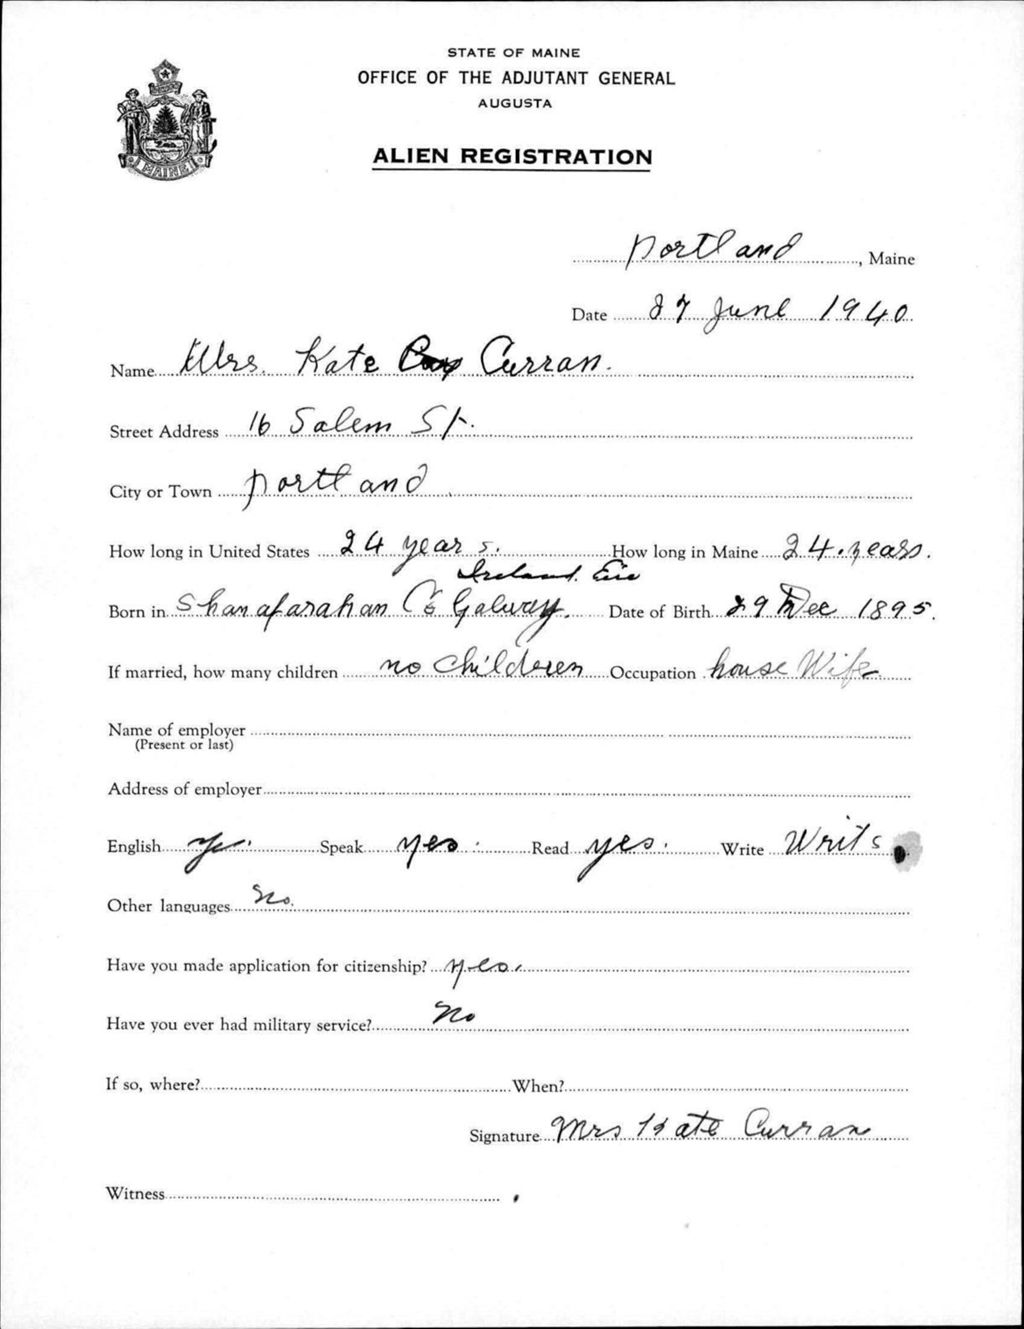 STATE OF MAINE
OFFICE OF THE ADJUTANT GENERAL
AUGUSTA
MAINE
ALIEN REGISTRATION
Portland, Maine
Date 27 June 1940
Name Mrs. Kate Curran.
Street Address 16 Salem St.
City or Town Portland
How long in United States 24 years. How long in Maine 24. years.
Ireland. Eire
Born in Shanafarahan Co Galway. Date of Birth 29 Dec 1895.
If married, how many children no children Occupation house Wife
Name of employer
(Present or last)
Address of employer
English yes. Speak yes. Read yes. Write Write
Other languages No.
Have you made application for citizenship? yes.
Have you ever had military service? No
If so, where? When?
Signature Mrs Kate Curran
Witness